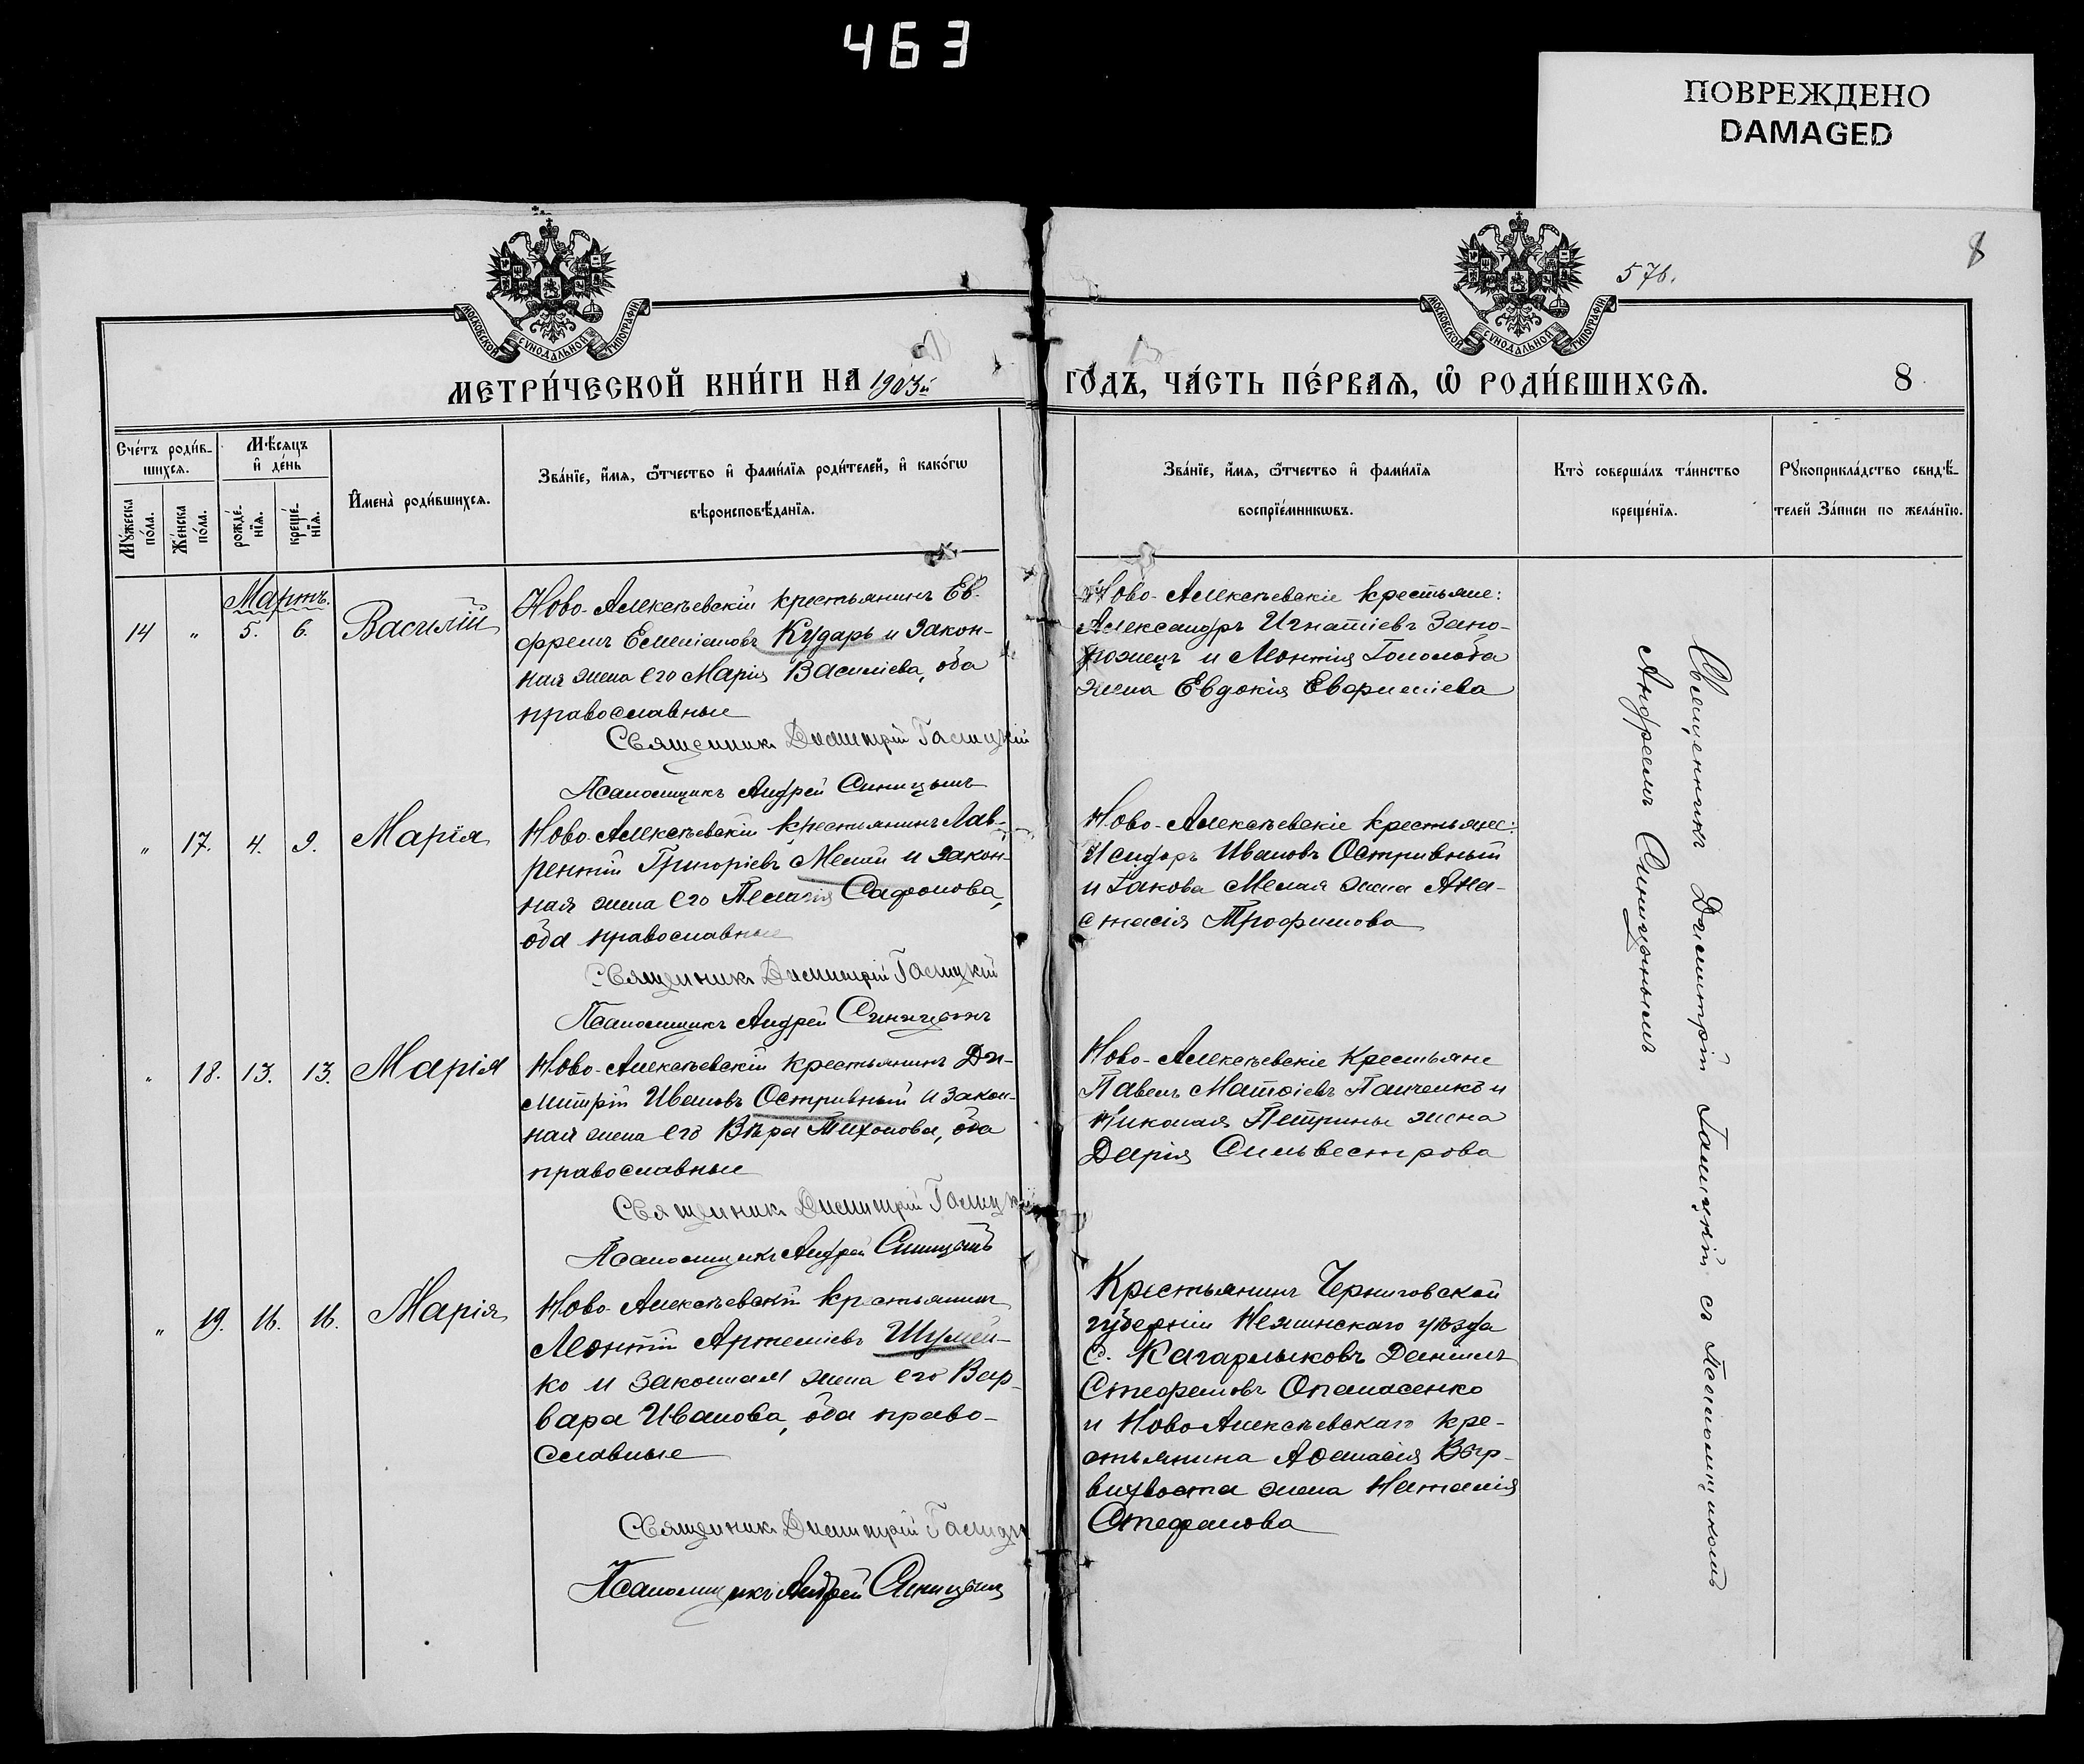 463
ПОВРЕЖДЕНО
DAMAGED
МОСКОВСКОЙ СѴНОДАЛЬНОЙ ТИПОГРАФІИ
МОСКОВСКОЙ СѴНОДАЛЬНОЙ ТИПОГРАФІИ
576.
8
МЕТРИ́ЧЕСКОЙ КНИ́ГИ НА 1903й
ГО́ДЪ, ЧА́СТЬ ПЕ́РВАѦ, Ѿ РОДИ́ВШИХСѦ.
8
Сче́тъ роди́в-
шихсѧ.
Мѣ́сѧцъ
и҆ де́нь
Мꙋ́жеска
по́ла.
Же́нска
по́ла.
рожде́-
нїѧ.
креще́-
нїѧ.
И҆мена̀ роди́вшихсѧ.
Зва́нїе, и҆́мѧ, ѻ҆́тчество и҆ фами́лїѧ роди́телей, и҆ како́гѡ
вѣроисповѣ́данїѧ.
Зва́нїе, и҆́мѧ, ѻ҆́тчество и҆ фами́лїѧ
воспрїе́мникѡвъ.
Кто̀ соверша́лъ та́инство
креще́нїѧ.
Рꙋкоприкла́дство свидѣ́-
телей За́писи по жела́нїю.
Мартъ.
14 " 5. 6. Василій
Ново-Алексѣевскій крестьянинъ Ев-
фремъ Емеліановъ Кударь и закон-
ная жена его Марія Василіева, оба
православные
Священникъ Димитрій Галицкій
Псаломщикъ Андрей Синицынъ
Ново-Алексѣевскіе крестьяне:
Александръ Игнатіевъ Запо-
рожецъ и Леонтія Гололоба
жена Евдокія
" 17. 4. 9. Марія
Ново-Алексѣевскій крестьянинъ Лав-
рентій Григоріевъ Мелай и закон-
ная жена его Пелагія Сафонова,
оба православные
Священникъ Димитрій Галицкій
Псаломщикъ Андрей Синицынъ
Ново-Алексѣевскіе крестьяне:
Исидоръ Ивановъ Остривный
и Іакова Мелая жена Ана-
стасія Трофимова
" 18. 13. 13. Марія
Ново-Алексѣевскій крестьянинъ Ди-
митрій Ивановъ Остривный и закон-
ная жена его Вѣра Тихонова, оба
православные
Священникъ Димитрій Галицкій
Псаломщикъ Андрей Синицынъ
Ново-Алексѣевскіе крестьяне
Павелъ Матѳіевъ Панченко и
Николая Петрины жена
Дарія Сильвестрова
" 19. 16. 16. Марія
Ново-Алексѣевскій крестьянинъ
Леонтій Артеміевъ Шулей-
ко и законная жена его Вар-
вара Иванова, оба право-
славные
Священникъ Димитрій Галицкій
Псаломщикъ Андрей Синицынъ
Крестьянинъ Черниговской
губерніи Нѣжинскаго уѣзда
с. Кагарлыковъ Даніилъ
Стефановъ Опанасенко
и Ново Алексѣевскаго кре-
стьянина Аѳанасія Вбер-
вихвоста жена Наталія
Стефанова
Священникъ Димитрій Галицкій съ Псаломщикомъ
Андреемъ Синицынымъ